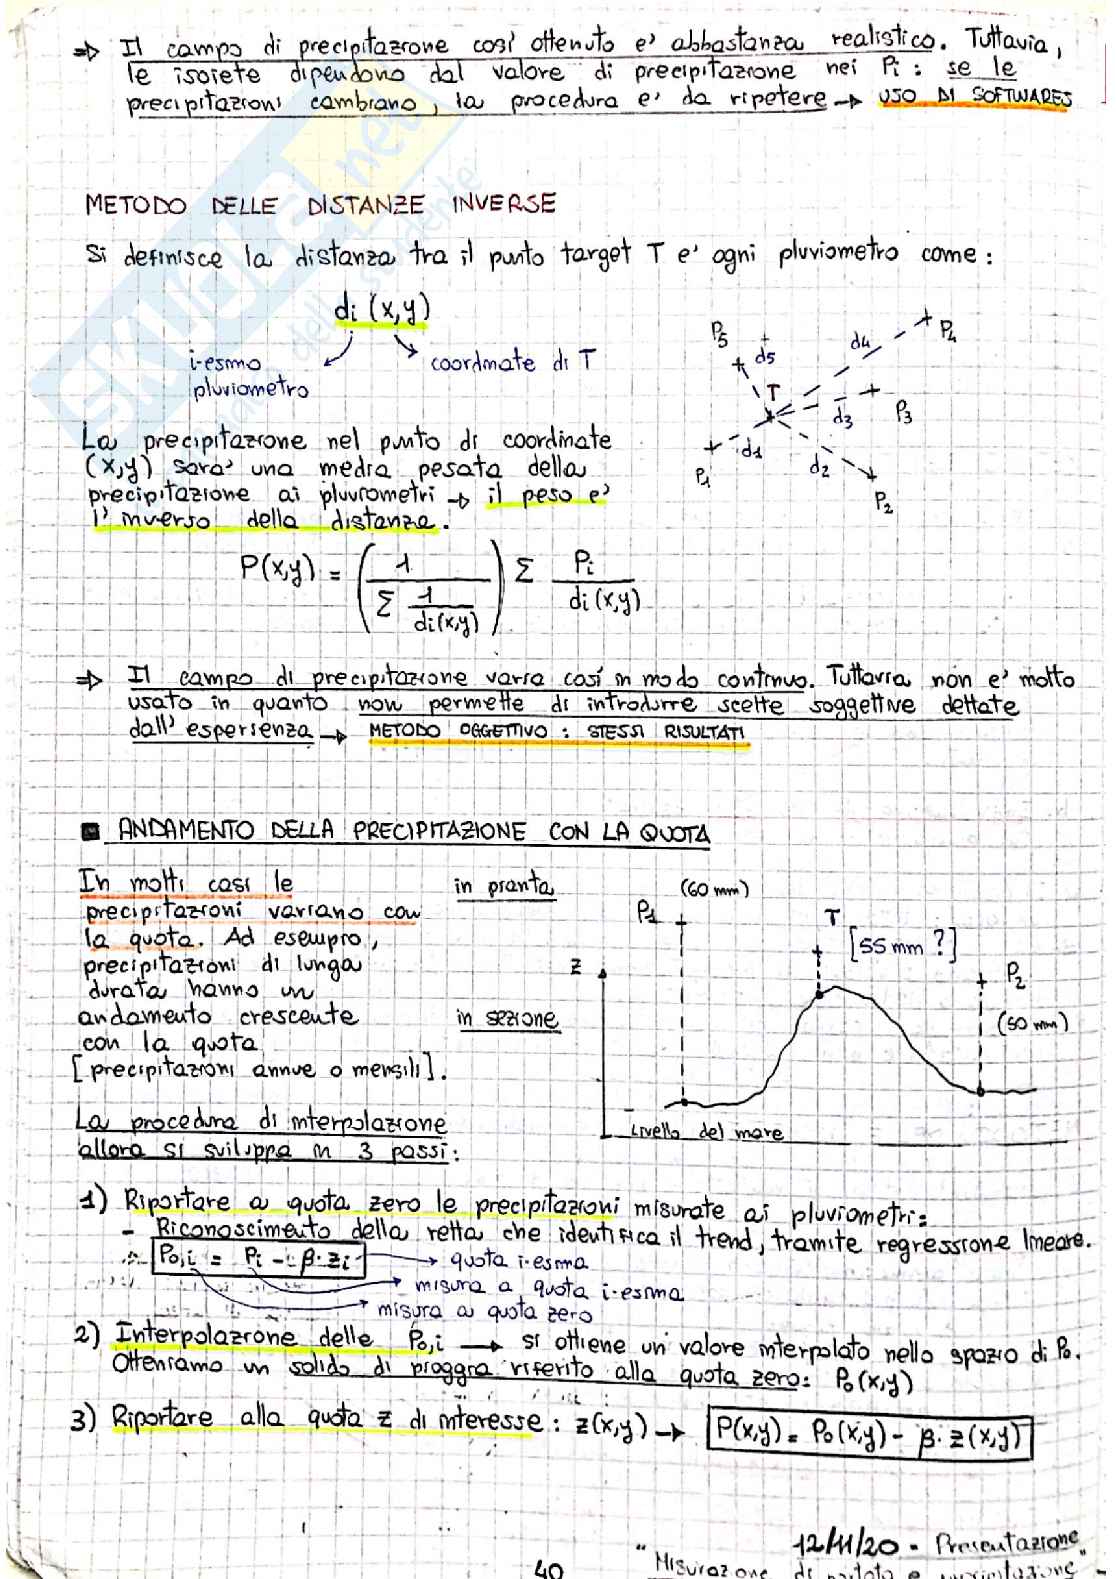 ⇒ Il campo di precipitazione così ottenuto e' abbastanza realistico. Tuttavia,
le isoiete dipendono dal valore di precipitazione nei Pi : se le
precipitazioni cambiano, la procedura e' da ripetere → USO DI SOFTWARES
METODO DELLE DISTANZE INVERSE
Si definisce la distanza tra il punto target T e' ogni pluviometro come :
di (x,y)
i-esimo
pluviometro
coordinate di T
P5
d5
d4
P4
T
d3
P3
d1
P1
d2
P2
La precipitazione nel punto di coordinate
(x,y) sara' una media pesata della
precipitazione ai pluviometri → il peso e'
l'inverso della distanza.
P(x,y) = ( 1 / Σ 1/di(x,y) ) Σ Pi / di(x,y)
⇒ Il campo di precipitazione varia così in modo continuo. Tuttavia non e' molto
usato in quanto non permette di introdurre scelte soggettive dettate
dall'esperienza → METODO OGGETTIVO : STESSI RISULTATI
■ ANDAMENTO DELLA PRECIPITAZIONE CON LA QUOTA
In molti casi le
precipitazioni variano con
la quota. Ad esempio,
precipitazioni di lunga
durata hanno un
andamento crescente
con la quota
[precipitazioni annue o mensili].
in pianta
(60 mm)
P1
T
[55 mm ?]
z
P2
in sezione
(50 mm)
Livello del mare
La procedura di interpolazione
allora si sviluppa in 3 passi :
1) Riportare a quota zero le precipitazioni misurate ai pluviometri :
- Riconoscimento della retta che identifica il trend, tramite regressione lineare.
P0,i = Pi - β·zi → quota i-esima
→ misura a quota i-esima
→ misura a quota zero
2) Interpolazione delle P0,i → si ottiene un valore interpolato nello spazio di P0.
Otteniamo un solido di pioggia riferito alla quota zero: P0(x,y)
3) Riportare alla quota z di interesse : z(x,y) → P(x,y) = P0(x,y) - β·z(x,y)
12/11/20 - Presentazione
40
"Misurazione di portata e precipitazione"
SKUOLA.net